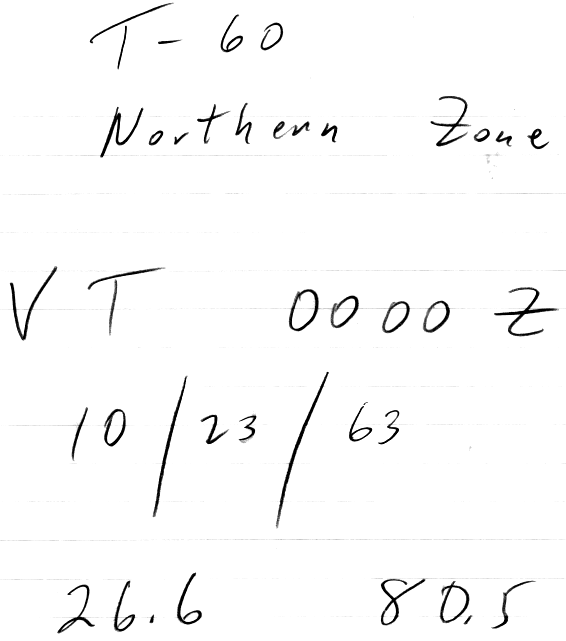 T-60
Northern Zone
VT 0000Z
10/23/63
26.6 80.5